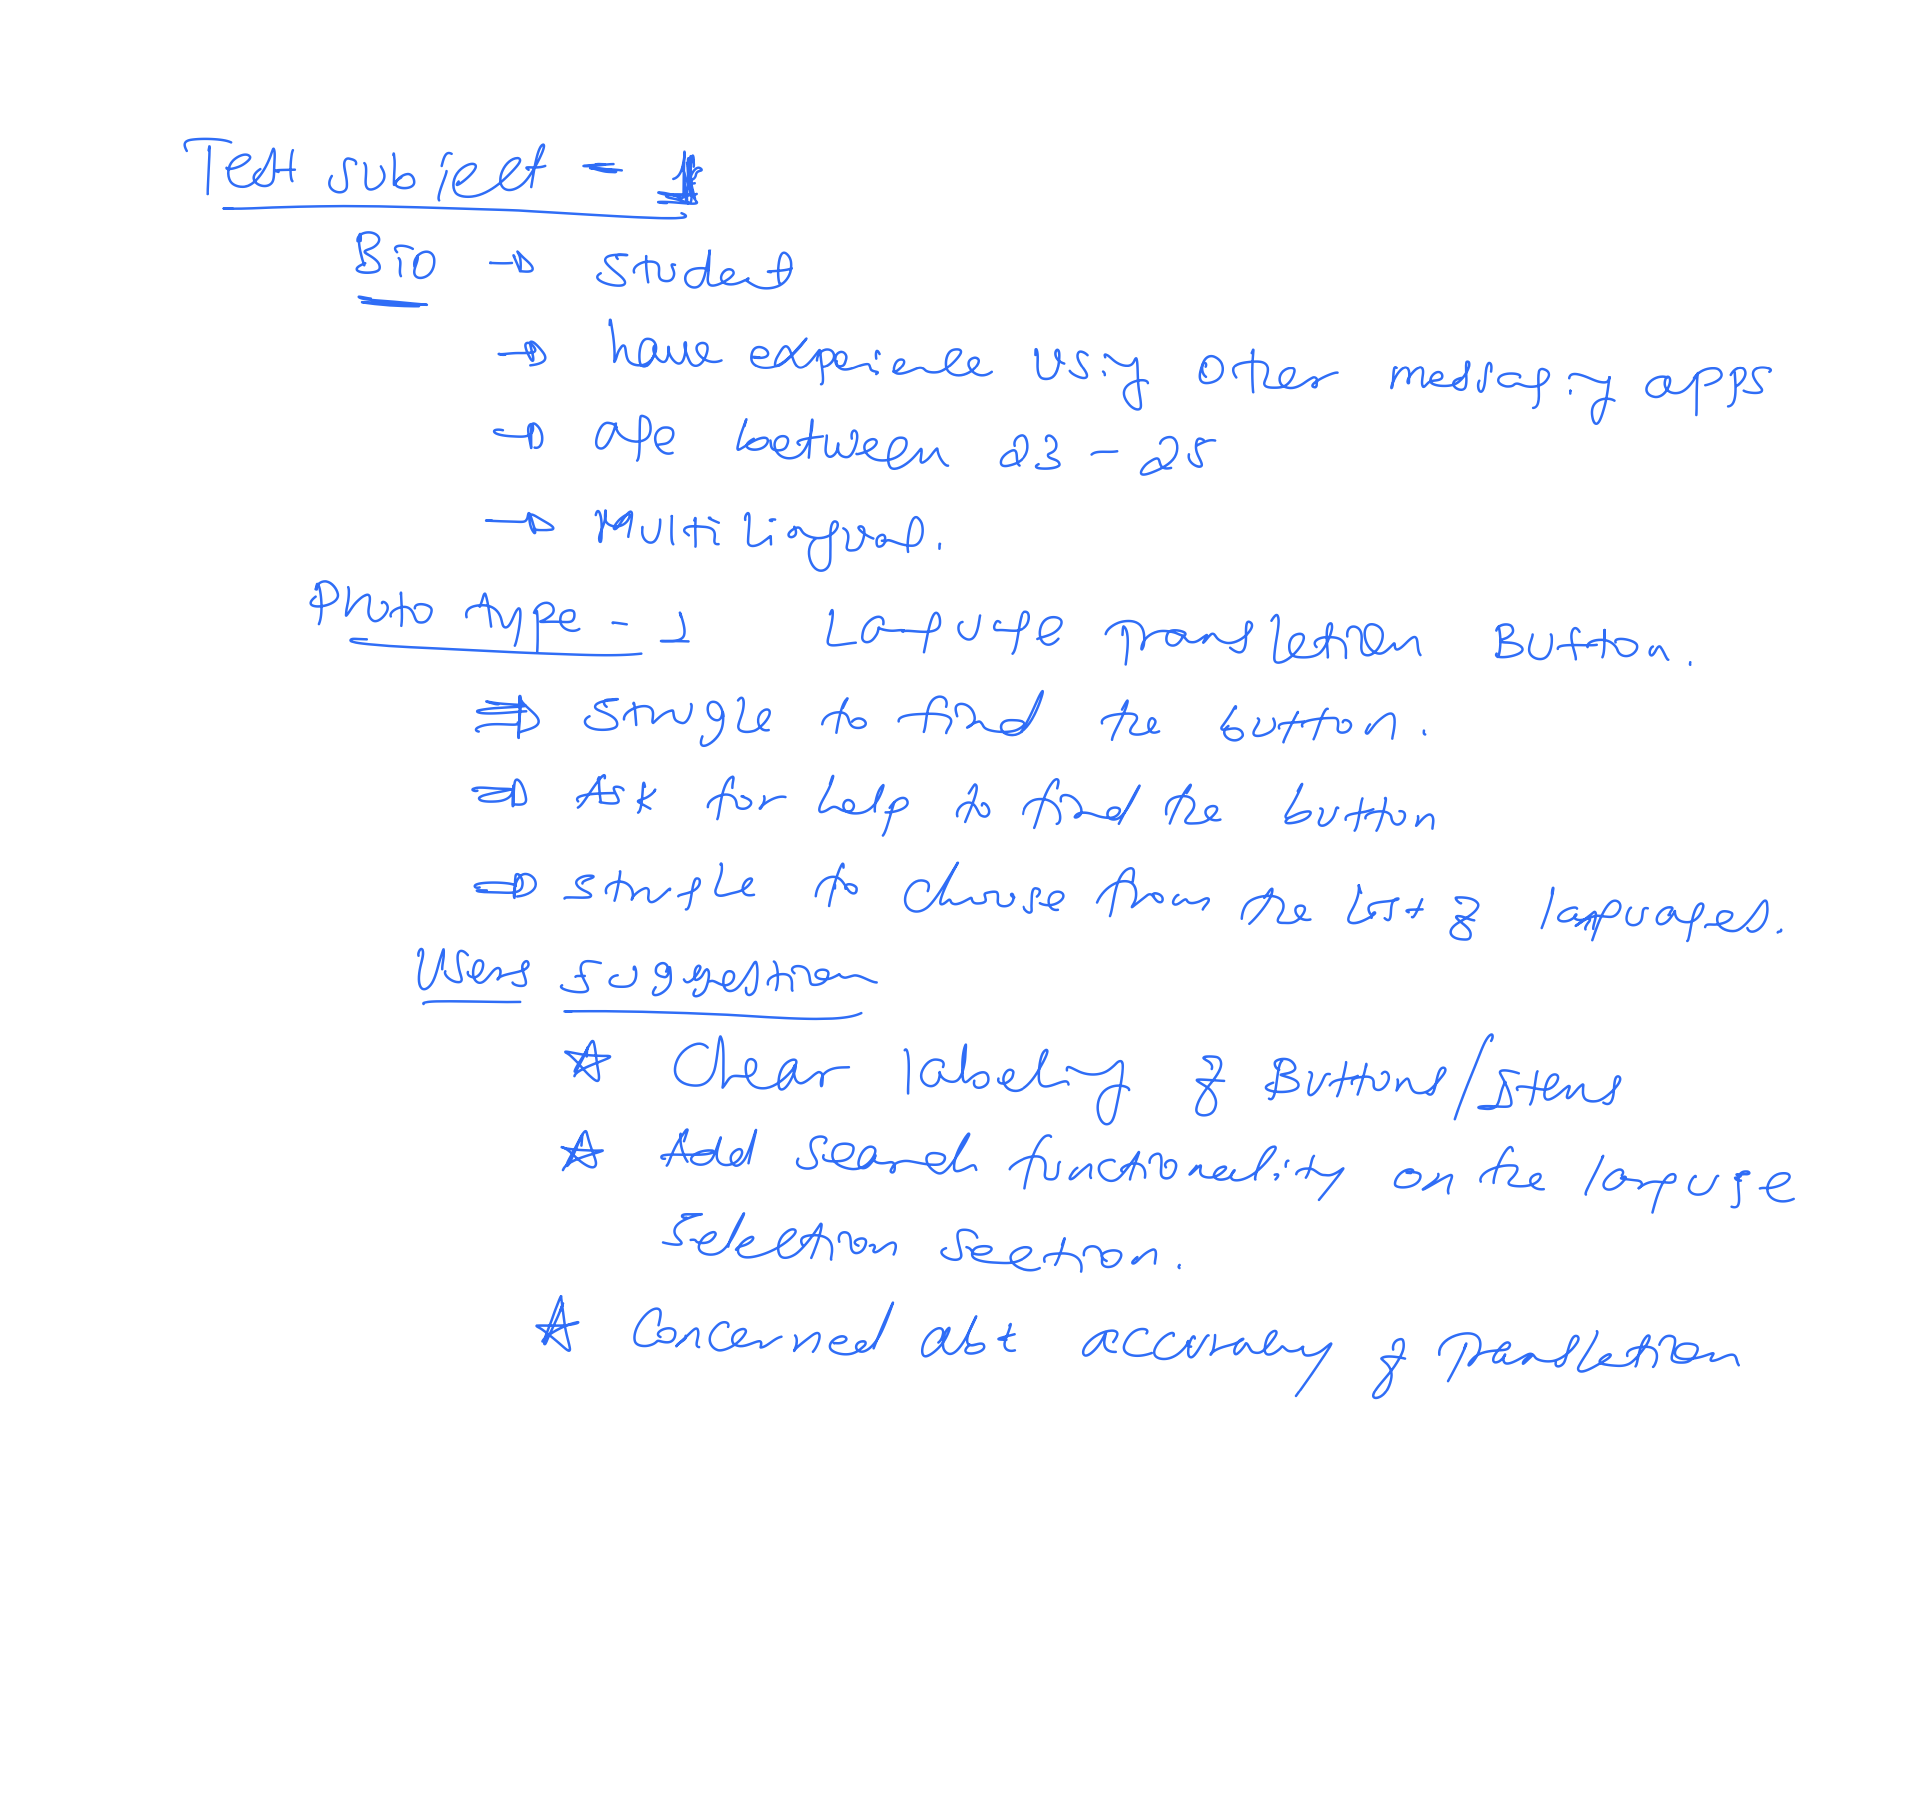 Test subject - 1
Bio → Student
→ have experience using other messaging apps
→ age between 23 - 25
→ Multilingual.
Phototype - 1 Language Translation Button.
⇒ strugle to find the button.
⇒ Ask for help to find the button
⇒ strugle to choose from the list of languages.
Users suggestion
☆ Clear labeling of Buttons/Items
☆ Add search functionality on the language
Selection section.
☆ Concerned abt accuracy of Translation